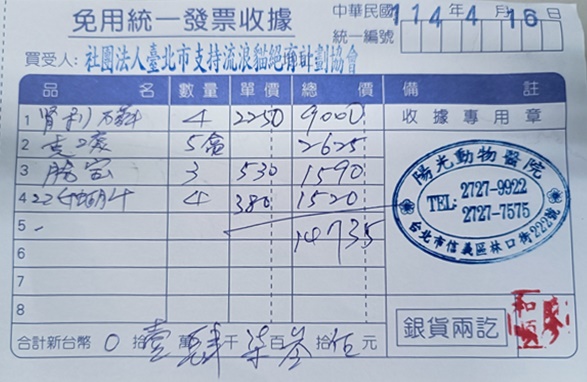 免用統一發票收據
中華民國 114年4月16日
統一編號
買受人: 社團法人臺北市支持流浪貓絕育計劃協會
品名 數量 單價 總價 備註
1 4 2250 9000 收據專用章
2 5盒 2625
3 3 530 1590
4 4 380 1520
5 14735
6
7
8
陽光動物醫院
TEL: 2727-9922
2727-7575
台北市信義區林口街222號
銀貨兩訖
合計新台幣 0 拾壹萬肆千柒百叁拾伍元